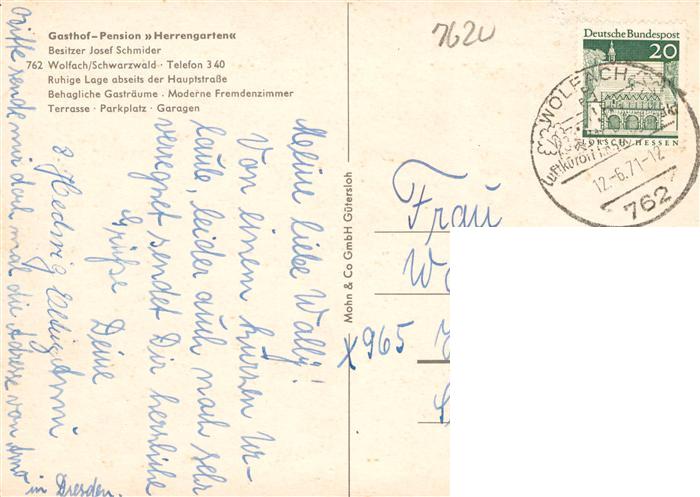 Gasthof-Pension »Herrengarten«
Besitzer Josef Schmider
762 Wolfach/Schwarzwald · Telefon 3 40
Ruhige Lage abseits der Hauptstraße
Behagliche Gasträume · Moderne Fremdenzimmer
Terrasse · Parkplatz · Garagen
Meine liebe Wally!
Von einem kurzen Ur-
laub, leider auch noch sehr
verregnet sendet Dir herzliche
Grüße Deine
Anni
Bitte sende mir doch mal die Adresse von
in Dresden.
Mohn & Co GmbH Gütersloh
7620
Deutsche Bundespost
20
LORSCH/HESSEN
WOLFACH
Luftkurort
12.-6.71-12
762
Frau
W
x 965